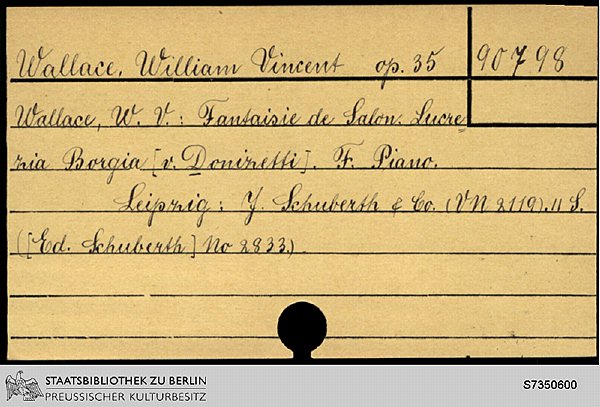 Wallace, William Vincent op. 35 90798
Wallace, W. V.: Fantaisie de Salon. Lucre=
zia Borgia [v. Donizetti]. F. Piano.
Leipzig: J. Schuberth & Co. (VN 2119). 11 S.
([Ed. Schuberth] No 2833.)
STAATSBIBLIOTHEK ZU BERLIN
PREUSSISCHER KULTURBESITZ
S7350600